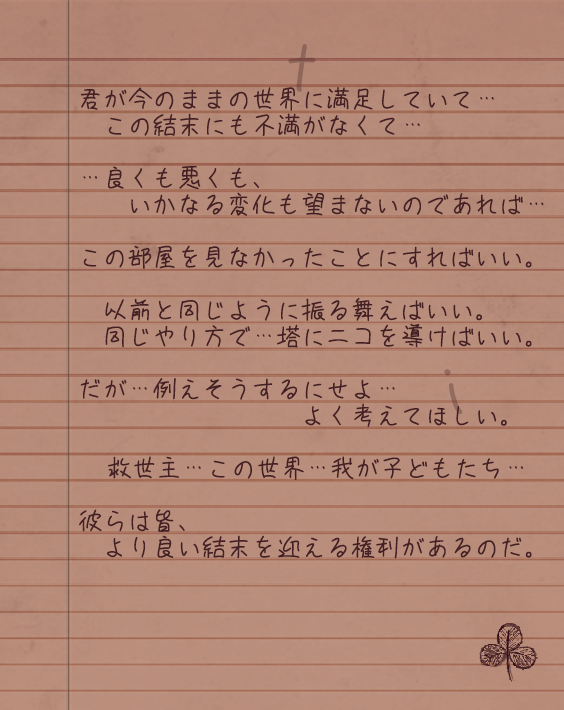 君が今のままの世界に満足していて…
この結末にも不満がなくて…
…良くも悪くも、
いかなる変化も望まないのであれば…
この部屋を見なかったことにすればいい。
以前と同じように振る舞えばいい。
同じやり方で…塔にニコを導けばいい。
だが…例えそうするにせよ…
よく考えてほしい。
救世主…この世界…我が子どもたち…
彼らは皆、
より良い結末を迎える権利があるのだ。